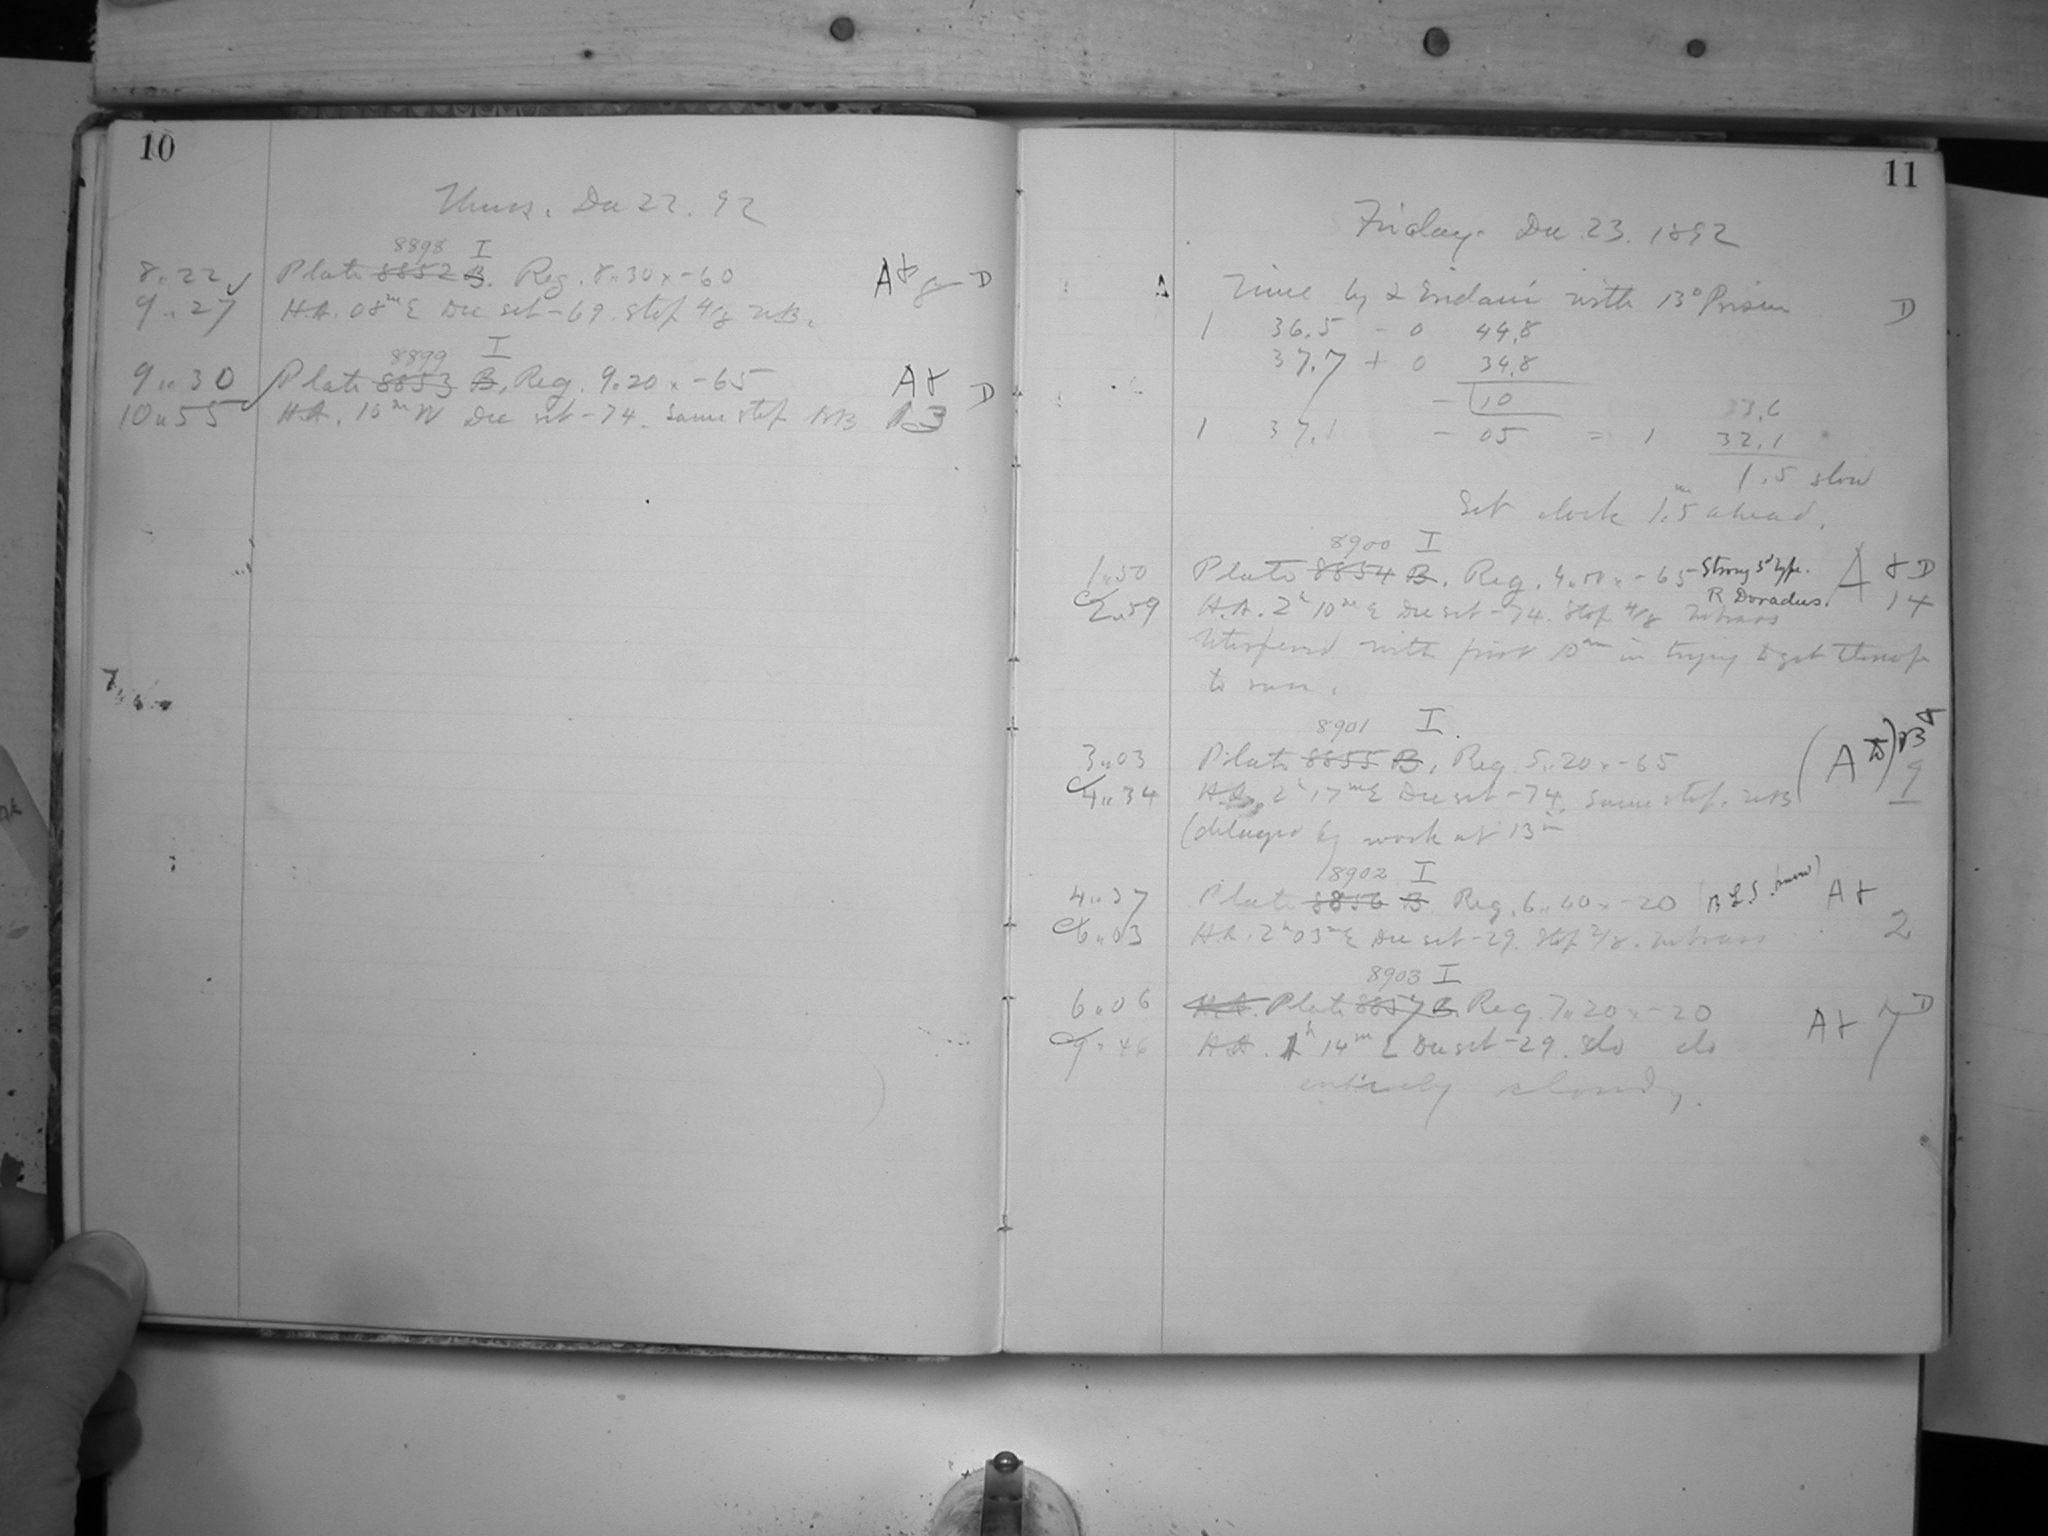 10
Thurs. Dec 22. 92
8898 I
8 22 Plate 8852 B. Reg. 8 30 x -60 A
9 27 H.A. 08m E Dec set -69. Stop 4/8 D
8899 I
9 30 Plate 8853 B, Reg. 9 20 x -65 A
10 55 H.A. 10m W Dec set -74. Same stop D
11
Friday. Dec 23. 1892
Time by with 13° Prism D
1 36.5 - 0 44.8
37.7 + 0 34.8
- 10 33.6
1 37.1 - 05 = 1 32.1
1.5 slow
Set clock 1.5m ahead.
8900 I
1 50 Plate 8854 B. Reg. 4 50 x -65 Strong 3d type. A D
2 59 H.A. 2h 10m E Dec set -74. Stop 4/8 R Doradus. 14
Interfered with first 10m in trying to get
to run.
8901 I.
3 03 Plate 8855 B, Reg. 5 20 x -65 (A
4 34 H.A. 2h 17m E Dec set -74. Same stop. 9
(delayed by work at 13in
8902 I
4 37 Plate 8856 B Reg. 6 40 x -20 A
6 03 H.A. 2h 03m E Dec set -29. Stop 2/8. 2
8903 I
6 06 H.A. Plate 8857 B. Reg. 7 20 x -20 D
9 46 H.A. 1h 14m E Dec set -29. do do A 7
entirely cloudy.